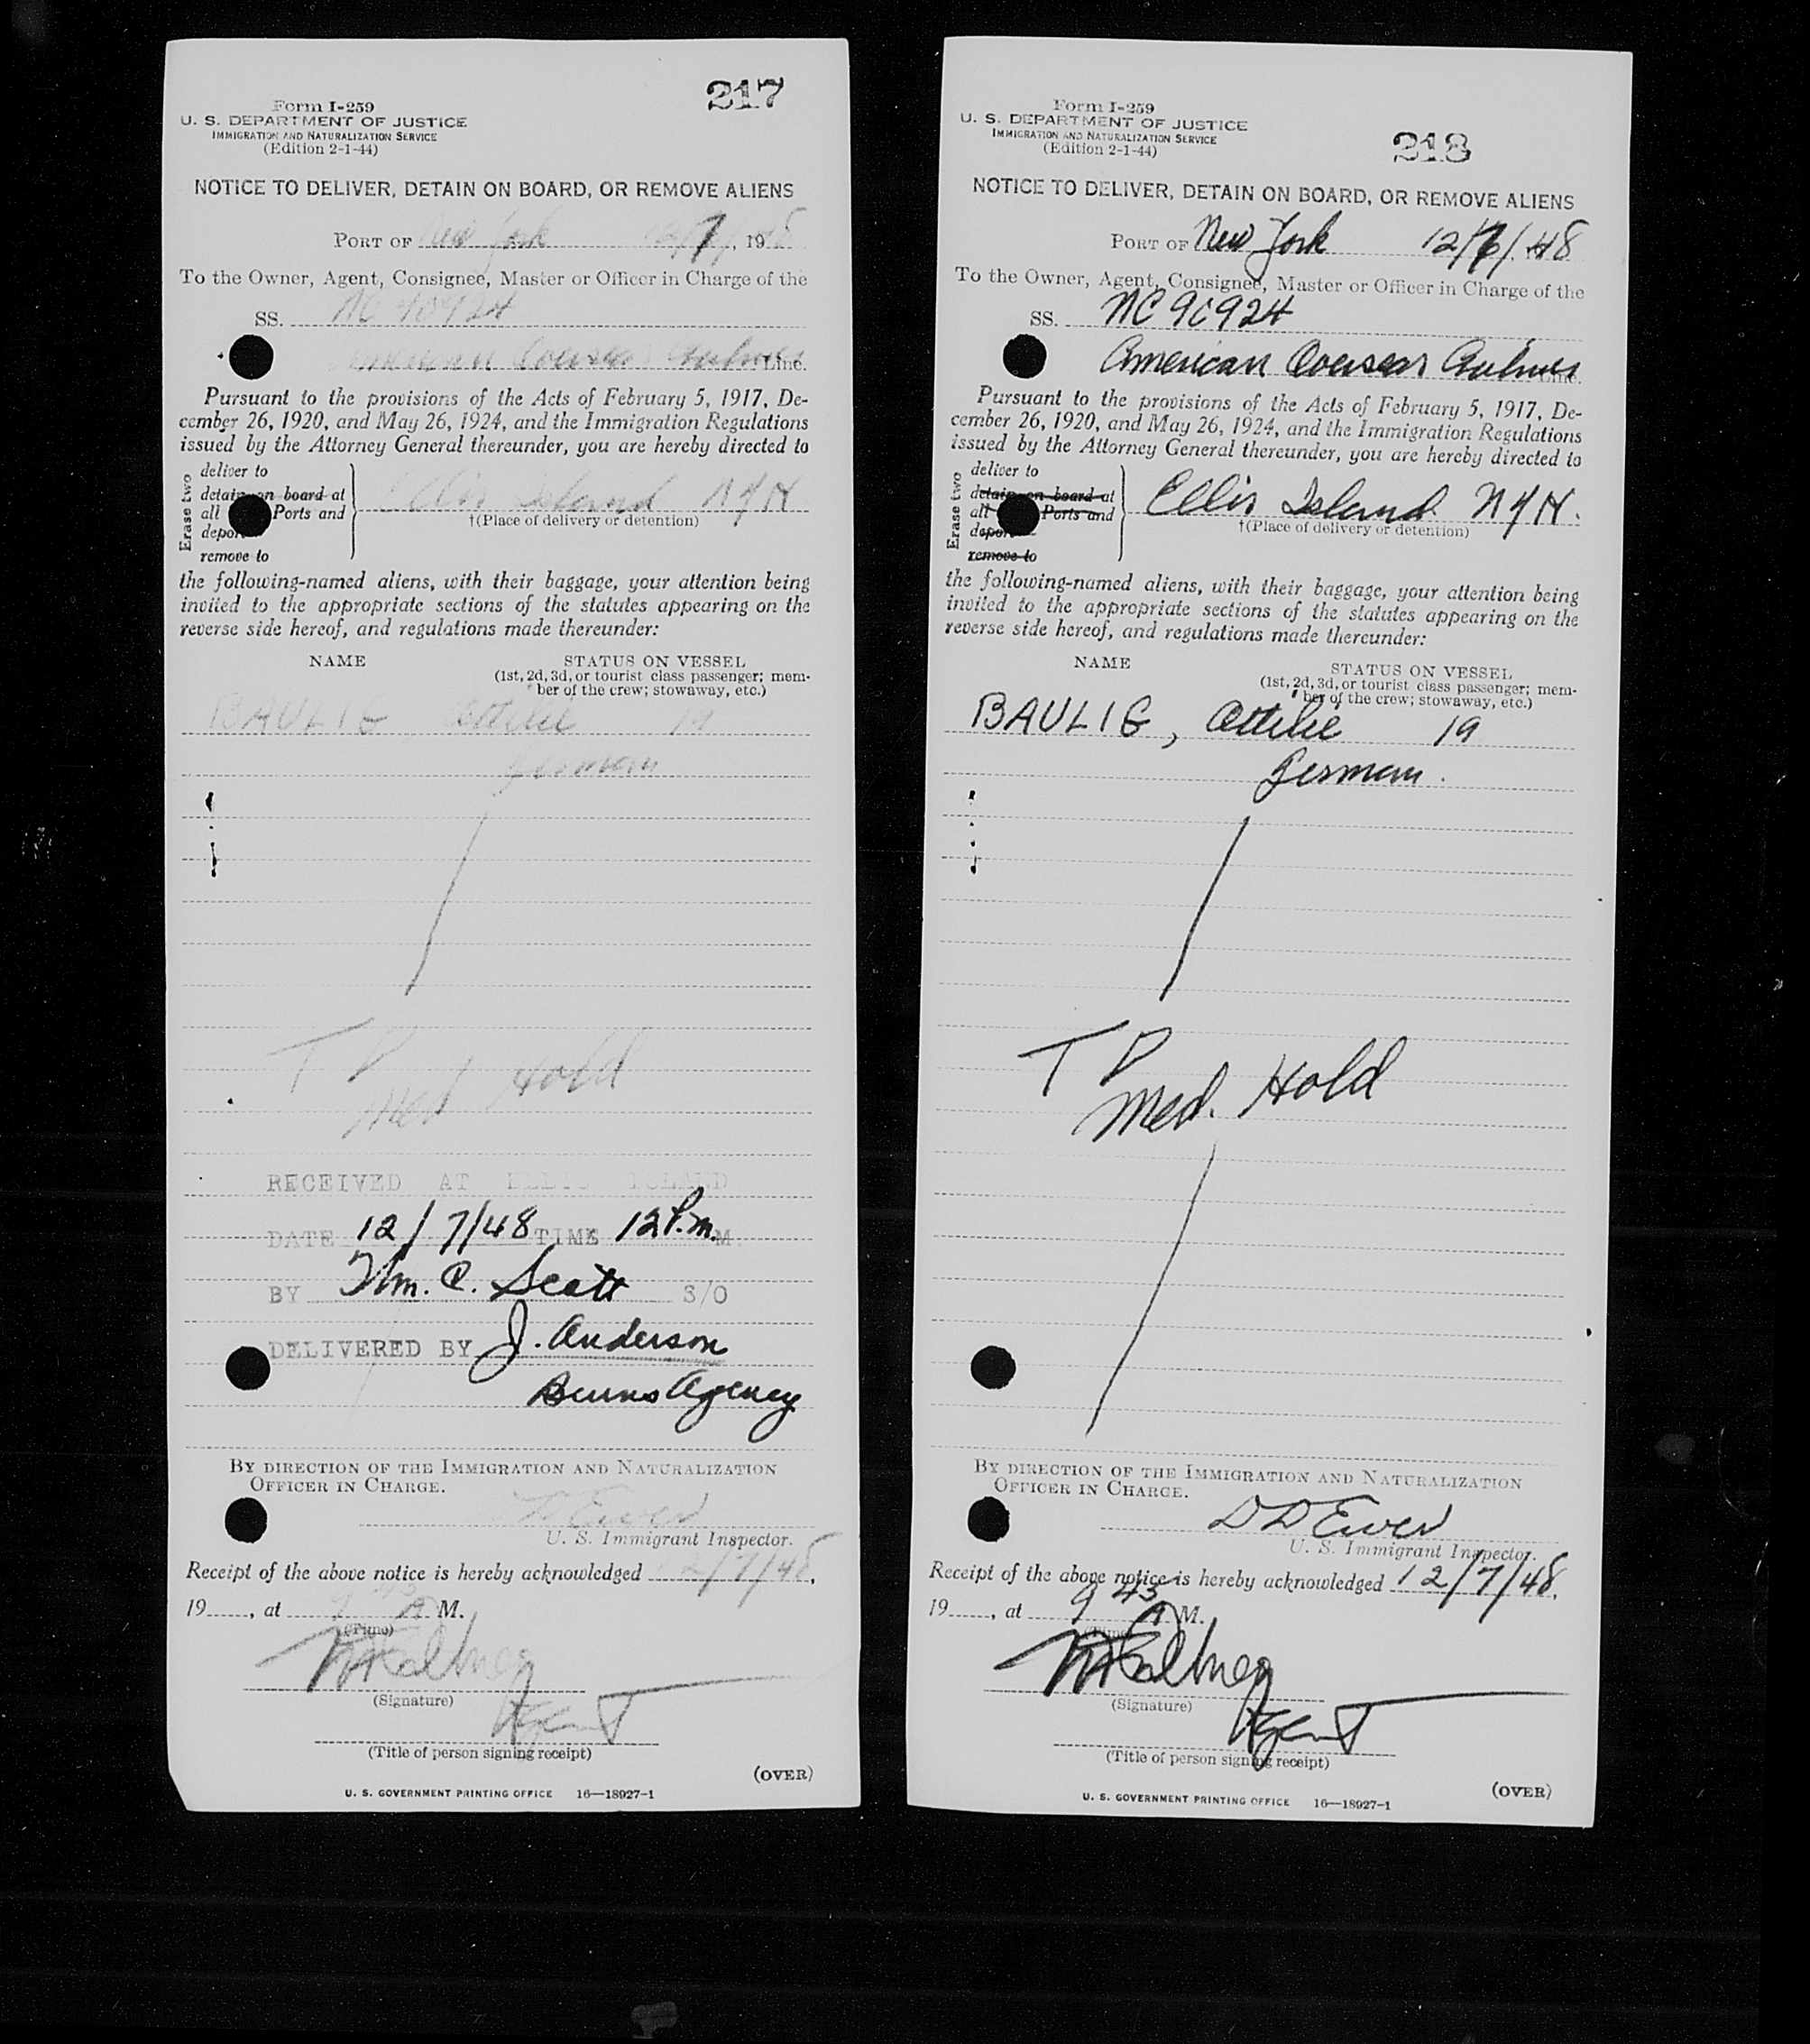 217
Form I-259
U. S. DEPARTMENT OF JUSTICE
IMMIGRATION AND NATURALIZATION SERVICE
(Edition 2-1-44)
NOTICE TO DELIVER, DETAIN ON BOARD, OR REMOVE ALIENS
PORT OF New York 12/7, 1948
To the Owner, Agent, Consignee, Master or Officer in Charge of the
SS. NC 90924
American Overseas Airlines Line.
Pursuant to the provisions of the Acts of February 5, 1917, De-
cember 26, 1920, and May 26, 1924, and the Immigration Regulations
issued by the Attorney General thereunder, you are hereby directed to
Erase two
deliver to
detain on board at
all Ports and
deport
remove to
Ellis Island NYH
†(Place of delivery or detention)
the following-named aliens, with their baggage, your attention being
invited to the appropriate sections of the statutes appearing on the
reverse side hereof, and regulations made thereunder:
NAME STATUS ON VESSEL
(1st, 2d, 3d, or tourist class passenger; mem-
ber of the crew; stowaway, etc.)
BAULIG Ottilie 19
German
T D
Med Hold
RECEIVED AT ELLIS ISLAND
DATE 12/7/48 TIME 12 P.m. M
BY Wm. C. Scott S/O
DELIVERED BY J. Anderson
Burns Agency
BY DIRECTION OF THE IMMIGRATION AND NATURALIZATION
OFFICER IN CHARGE.
U. S. Immigrant Inspector.
Receipt of the above notice is hereby acknowledged 12/7/48,
19, at 9 45 A M.
(Time)
(Signature)
Agent
(Title of person signing receipt)
(OVER)
U. S. GOVERNMENT PRINTING OFFICE 16—18927-1
218
Form I-259
U. S. DEPARTMENT OF JUSTICE
IMMIGRATION AND NATURALIZATION SERVICE
(Edition 2-1-44)
NOTICE TO DELIVER, DETAIN ON BOARD, OR REMOVE ALIENS
PORT OF New York 12/7/48
To the Owner, Agent, Consignee, Master or Officer in Charge of the
SS. NC 90924
American Overseas Airlines Line.
Pursuant to the provisions of the Acts of February 5, 1917, De-
cember 26, 1920, and May 26, 1924, and the Immigration Regulations
issued by the Attorney General thereunder, you are hereby directed to
Erase two
deliver to
detain on board at
all Ports and
deport
remove to
Ellis Island NYH.
†(Place of delivery or detention)
the following-named aliens, with their baggage, your attention being
invited to the appropriate sections of the statutes appearing on the
reverse side hereof, and regulations made thereunder:
NAME STATUS ON VESSEL
(1st, 2d, 3d, or tourist class passenger; mem-
ber of the crew; stowaway, etc.)
BAULIG, Ottilie 19
German.
T D
Med. Hold
BY DIRECTION OF THE IMMIGRATION AND NATURALIZATION
OFFICER IN CHARGE.
U. S. Immigrant Inspector.
Receipt of the above notice is hereby acknowledged 12/7/48,
19, at 9 45 A M.
(Time)
(Signature)
Agent
(Title of person signing receipt)
(OVER)
U. S. GOVERNMENT PRINTING OFFICE 16—18927-1